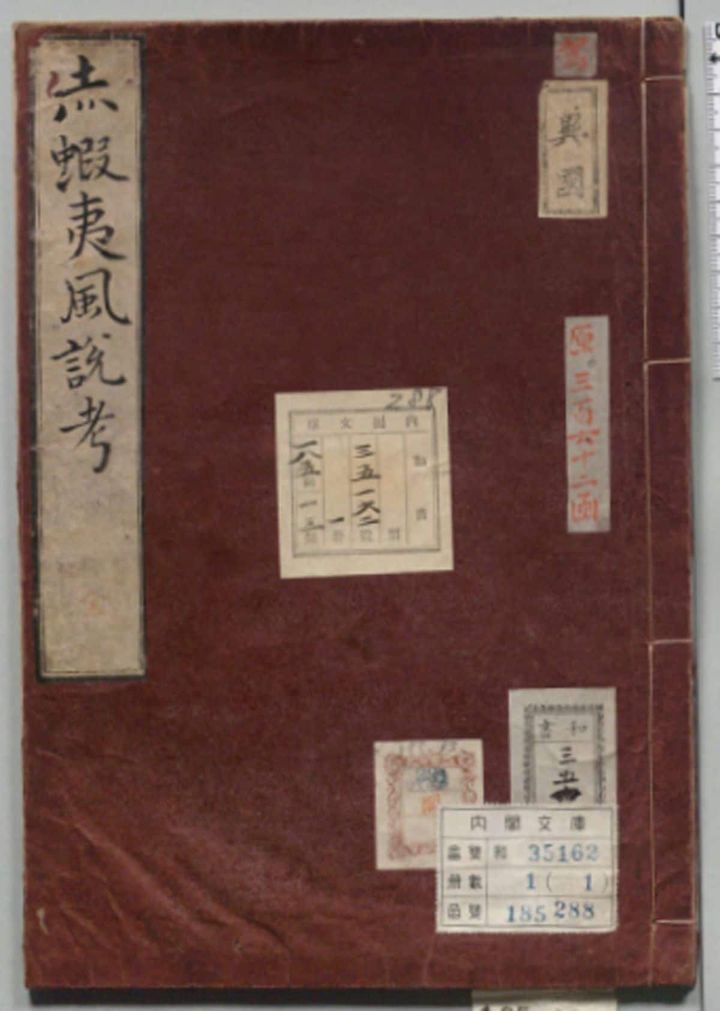 赤蝦夷風説考
異國
原三百六十二函
288
内閣文庫
和書
三五一六二
一
一八五
和書
三五
内閣文庫
番號 和 35162
冊數 1 ( 1 )
函號 185 288